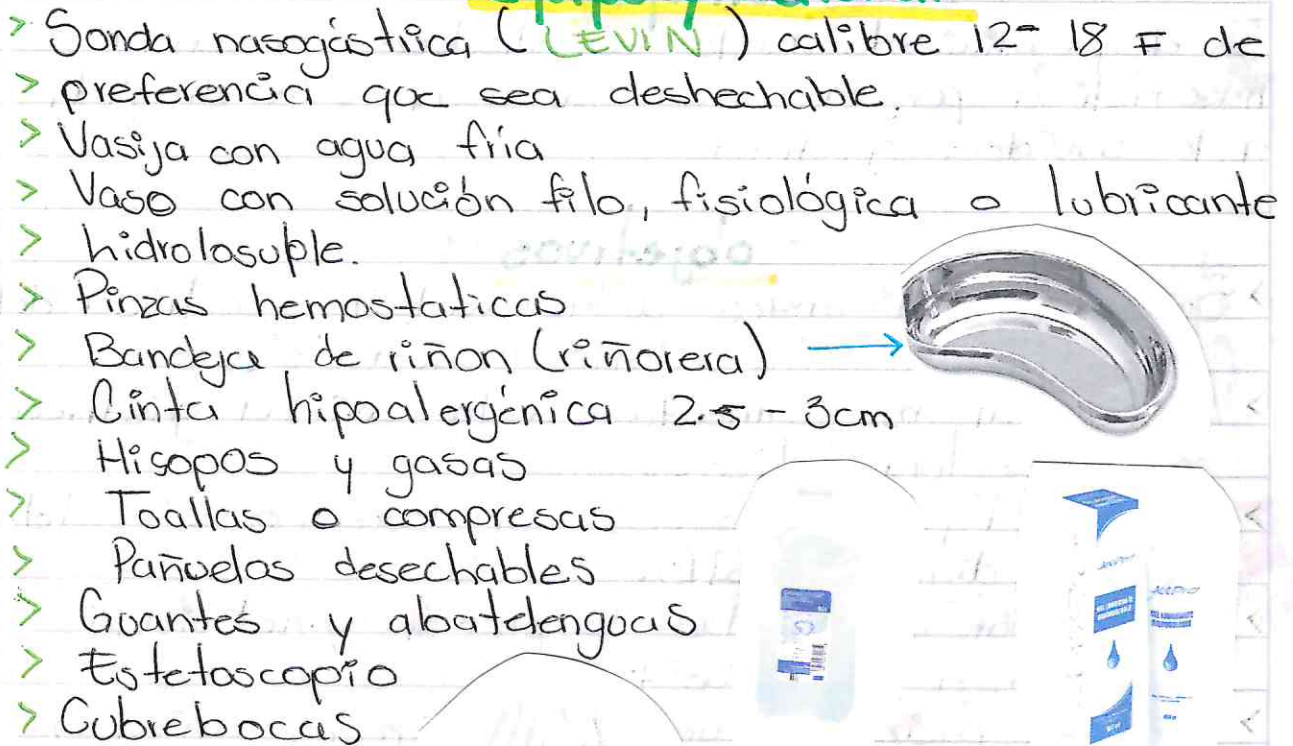 > Sonda nasogástrica (LEVIN) calibre 12- 18 F de
> preferencia que sea deshechable.
> Vasija con agua fría
> Vaso con solución filo, fisiológica o lubricante
> hidrolosuple.
> Pinzas hemostaticas
> Bandeja de riñon (riñorera)
> Cinta hipoalergénica 2.5 - 3cm
> Hisopos y gasas
> Toallas o compresas
> Pañuelos desechables
> Guantes y abatelenguas
> Estetoscopio
> Cubrebocas